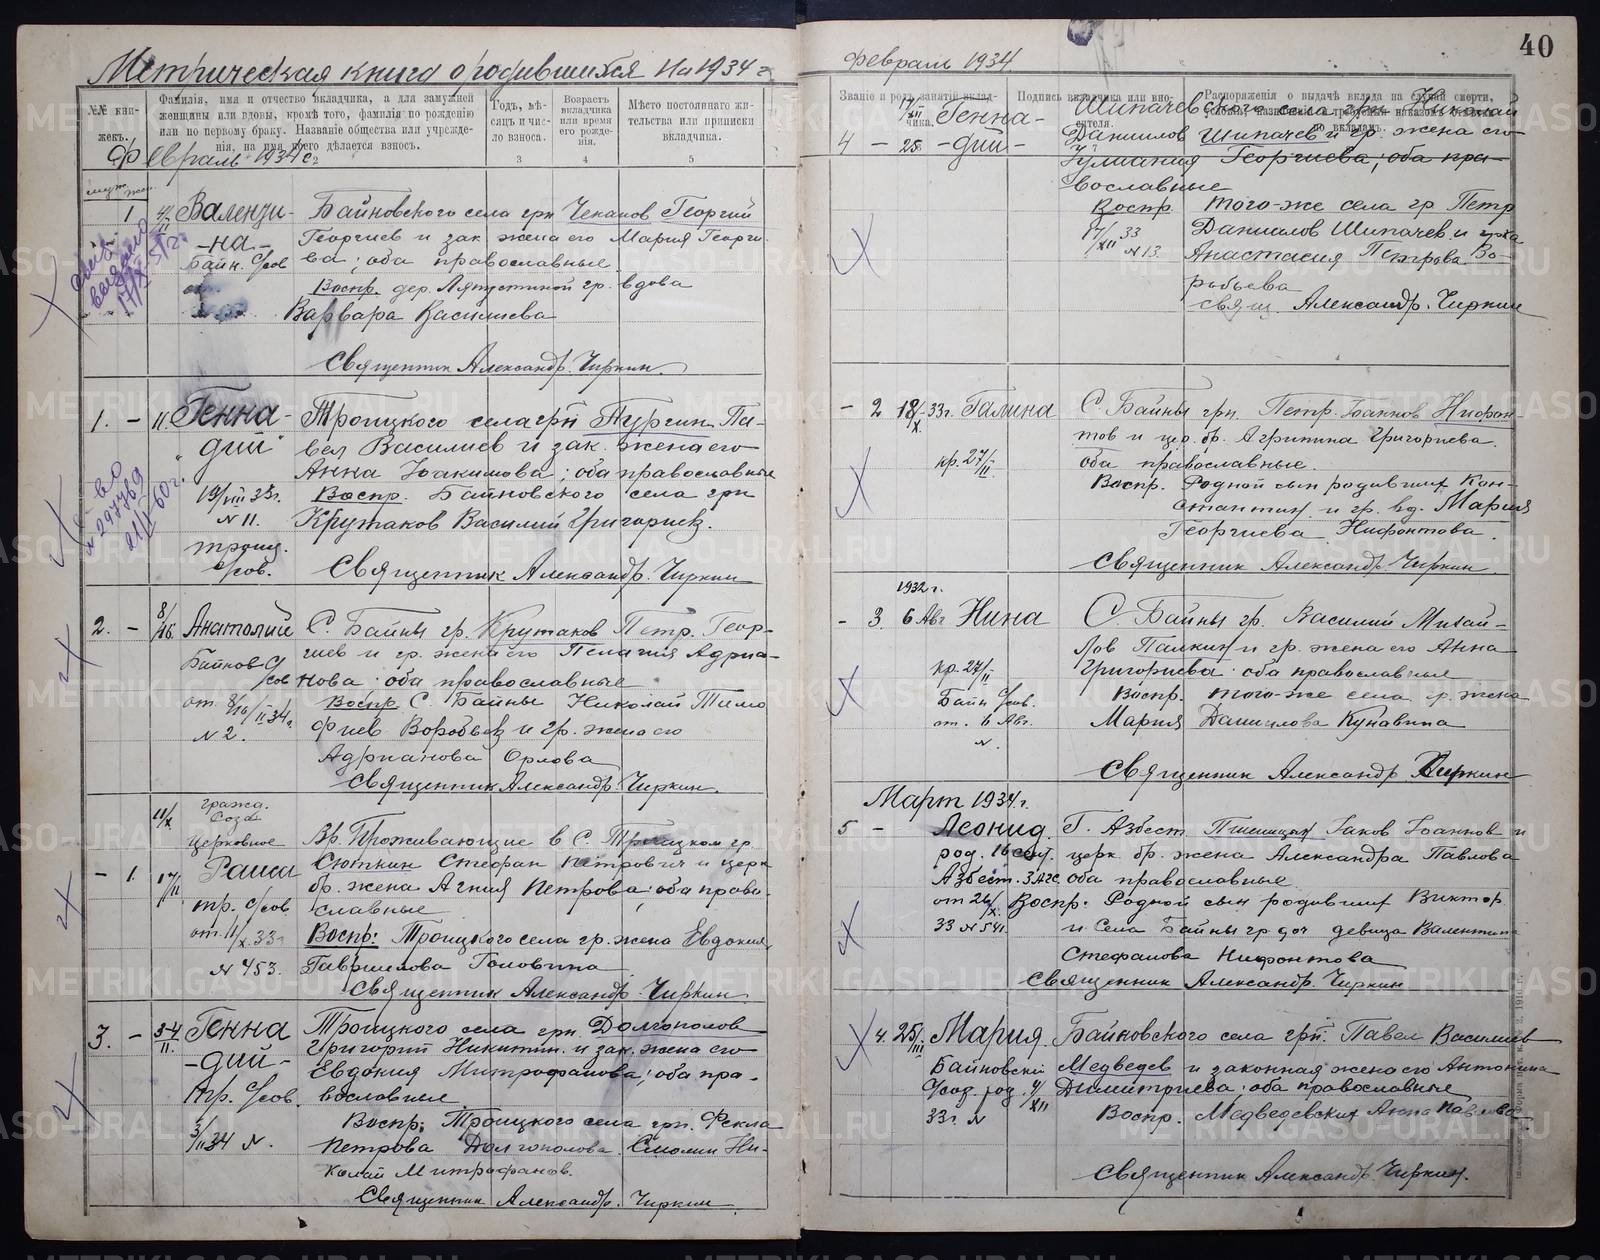 Метрическая книга о родившихся на 1934 г
№№ книжекъ.
Фамилія, имя и отчество вкладчика, а для замужней женщины или вдовы, кромѣ того, фамилія по рожденію или по первому браку. Названіе общества или учрежденія, на имя коего дѣлается взносъ.
Годъ, мѣсяцъ и число взноса.
Возрастъ вкладчика или время его рожденія.
Мѣсто постояннаго жительства или приписки вкладчика.
2 3 4 5
Февраль 1934 г
муж. жен.
1 Валенти- Байновского села грн Чепанов Георгий
-на- Георгиев и зак жена его Мария Георги-
Байн. С/сов ва; оба православные
от. Воспр. дер. Ляпустиной гр. вдова
Варвара Василиева
Священник Александр. Чиркин.
1. - 11. Генна- Троицкого села грн Тургин Па-
дий вел Василиев и зак. жена его
Анна Иоакимова; оба православные
19/VIII 33г. Воспр. Байновского села грн
№ 11. Крутаков Василий Григориев.
троиц.
С/сов. Священник Александр. Чиркин
№ 297769
21/I 60г.
2. - Анатолий С. Байны гр. Крутаков Петр. Геор-
Байнов С/сов гиев и гр. жена его Пелагия Адриа-
нова: оба православные
от 8/16/II 34г. Воспр С. Байны Николай Тимо
№ 2. фиев Воробьев и гр. жена его
Адрианова Орлова
Священник Александр. Чиркин.
11/X. гражд.
Церковное Вр. Проживающие в С. Троицком гр.
- 1. 17/II Раиса Сюткин Стефан Петрович и церк
бр. жена Агния Петрова; оба право-
тр. С/сов. славные
от 11/X. 33г Воспр: Троицкого села гр. жена Евдокия
№ 453. Гавриилова Головина
Священник Александр. Чиркин.
3. - 3-4/II. Генна Троицкого села грн. Долгополов
-дий- Григорий Никитин. и зак. жена его
Евдокия Митрофанова; оба пра-
Тр. С/сов. вославные
Воспр: Троицкого села грн. Фекла
3/II 34 №. Петрова Долгополова. Смолин Ни-
колай Митрофанов.
Священник Александр. Чиркин.
40
Февраль 1934
Званіе и родъ занятій вкладчика.
Подпись вкладчика или вносителя.
Распоряженія о выдачѣ вклада на случай смерти,
17/XII Генна- Шипачевского села грн Николай
4 - 25. -дий- Даниилов Шипачев и гр. жена его
Иулиания Георгиева; оба пра-
вославные
Воспр. того-же села гр Петр
17/XII 33 Даниилов Шипачев и
№ 13. Анастасия Петрова Во-
робьева
свящ. Александр. Чиркин
- 2 18/X. 33г. Галина С. Байны грн. Петр. Иоаннов Нифон-
тов и цер. бр. Агрипина Григориева.
кр. 27/II оба православные.
Воспр. Родной сын родивших Кон-
стантин. и гр. вд. Мария
Георгиева Нифонтова.
Священник Александр. Чиркин.
1932 г.
- 3. 6 Авг Нина С. Байны гр. Василий Михай-
лов Палкин и гр. жена его Анна
кр. 27/II Григориева: оба православные
Байн С/сов. Воспр. того-же села гр. жена
от. 6 Авг. Мария Даниилова Кунавина
№.
Священник Александр Чиркин
Март 1934 г.
5 - Леонид. Г. Азбест. Пшеницын Иаков Иоаннов и
род. 16 сент. церк бр. жена Александра Павлова
Азбест. ЗАГС оба православные
от 26/X. Воспр. Родной сын родивших Виктор
33 № 541. и Села Байны гр доч девица Валентина
Стефанова Нифонтова
Священник Александр. Чиркин
4. 25/III Мария. Байновского села грн. Павел Василиев
Байновский Медведев и законная жена его Антонина
С/сов. род. 4/XII Димитриева; оба православные
33г. № Воспр. Медведевских Анна Павлова
Священник Александр. Чиркин.
METRIKI.GASO-URAL.RU